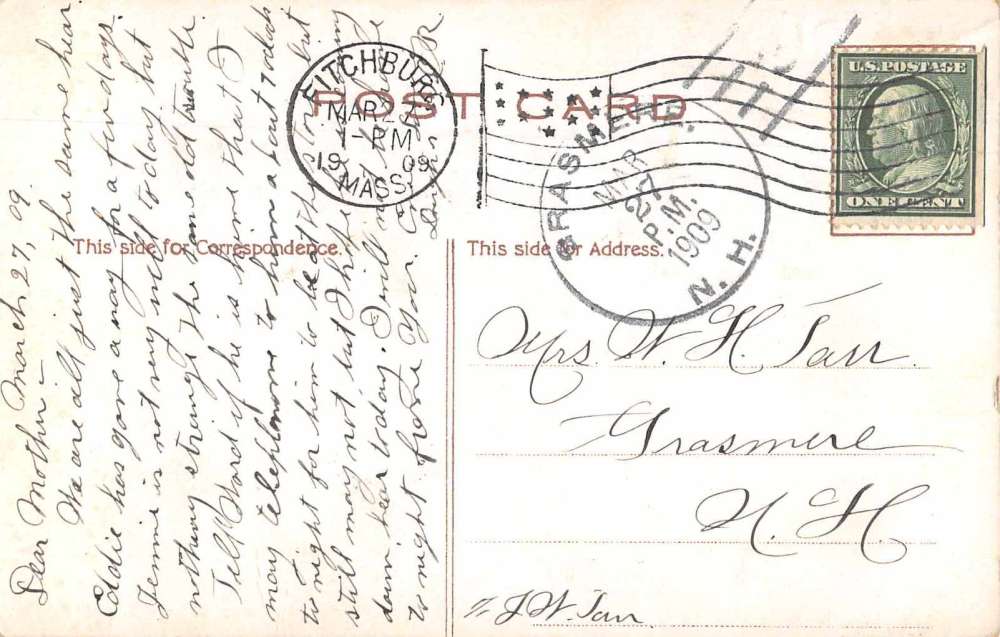 POST CARD
This side for Correspondence.
This side for Address.
FITCHBURG
MAR 27
1-PM
19 09
MASS.
GRASMERE
MAR
27
P.M.
1909
N. H.
U.S. POSTAGE
ONE CENT
Mrs. W. H. Tarr.
Grasmere
N. H.
% J W. Tarr
March 27, 09.
Dear Mother -
We are all just the same hear
Eddie has gone away for a few days.
Jennie is not very well today but
nothing strange the same old trouble
Tell Ward if he is home that I
may telephone to him about 7 oclock
to night for him to be at the store but
still may not, but I
down hear today. I will
to night from you.